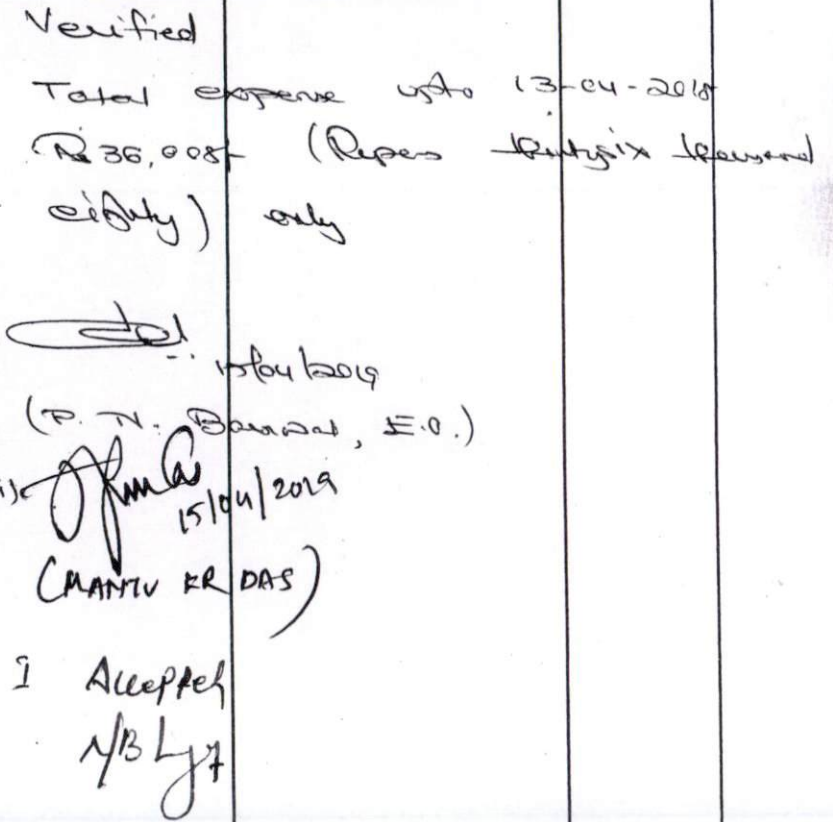 Verified
Total expense upto 13-04-2018
Rs 36,008/- (Rupees thirtysix thousand
eighty) only
15/04/2019
(P. N. Barman, E.O.)
15/04/2019
(MANTU KR DAS)
I Accepted